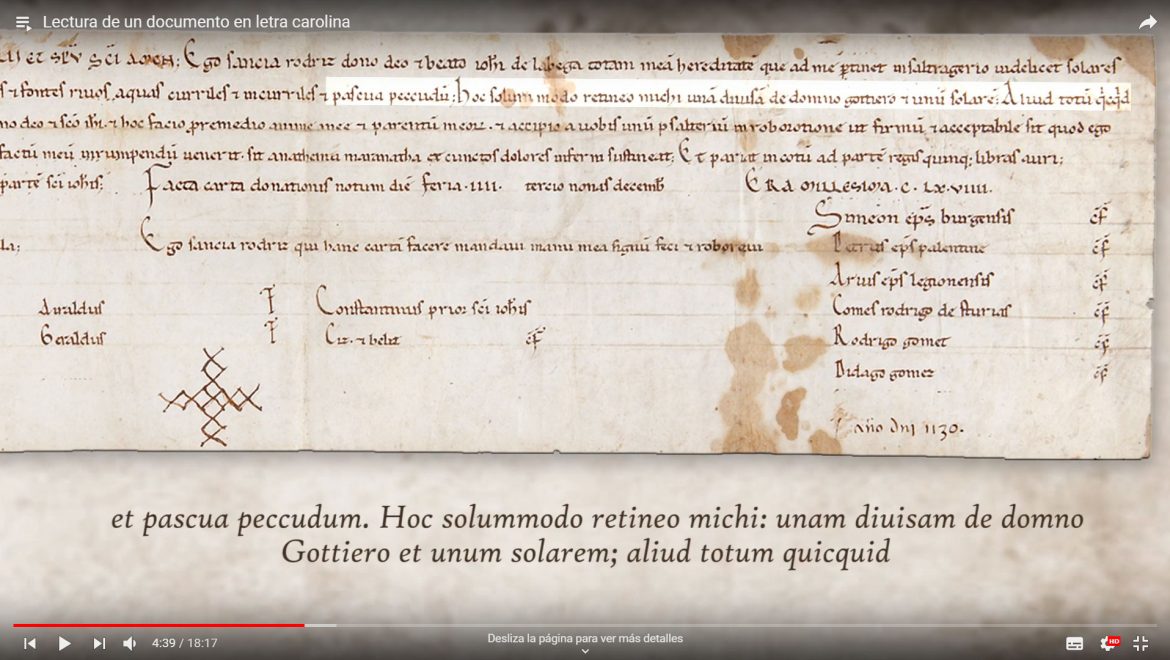 Lectura de un documento en letra carolina
et sp̄u sc̄i amen; Ego sancia rodriz dono deo ⁊ beato ioh̄i de labega totam meā hereditatē que ad me ꝑtinet in saltragerio uidelicet solares
⁊ fontes riuos aquas curriles ⁊ incurriles ⁊ pascua peccudū; hoc solum modo retineo michi unā diuisā de domno gottiero ⁊ unū solarē; Aliud totū
deo ⁊ sc̄o ih̄i ⁊ hoc facio ꝓremedio anime mee ⁊ parentū meoꝝ. ⁊ accipio a uobis unū psalteriū in roborotione ut firmū ⁊ acceptabile sit quod ego
factū meū inrumpendū uenerit. sit anathema maranatha et cunctos dolores inferni sustineat; Et pariat in cotū ad partē regis quinq; libras auri;
partē sc̄i ioh̄is; Facta carta donationis notum diē feria .IIII. tercio nonas decemb̄ ERA millesima . C . LX . VIIII .
Simeon ep̄s burgensis cf̄
Ego sancia rodriz qui hanc cartā facere mandaui manu mea signū feci ⁊ roboraui Petrus ep̄s palentine cf̄
Arius ep̄s legionensis cf̄
Auraldus Constantinus prior sc̄i ioh̄is Comes rodrigo de sturias cf̄
Geraldus Ciz. ⁊ beliz cf̄ Rodrigo gomet cf̄
Didago gomez cf̄
año dn̄i 1130.
et pascua peccudum. Hoc solummodo retineo michi: unam diuisam de domno
Gottiero et unum solarem; aliud totum quicquid
4:39 / 18:17
Desliza la página para ver más detalles
HD